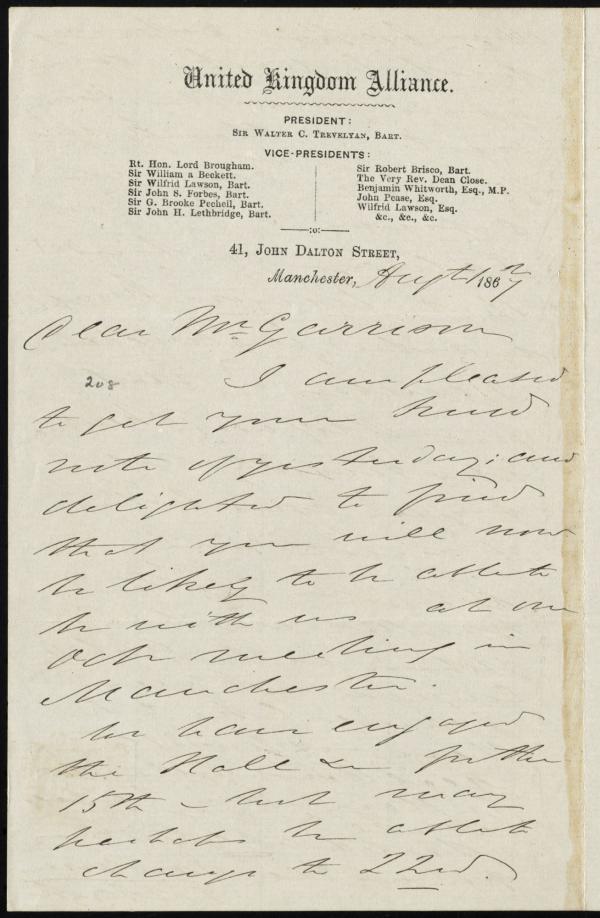 United Kingdom Alliance.
PRESIDENT:
SIR WALTER C. TREVELYAN, BART.
VICE-PRESIDENTS:
Rt. Hon. Lord Brougham.
Sir William a Beckett.
Sir Wilfrid Lawson, Bart.
Sir John S. Forbes, Bart.
Sir G. Brooke Pechell, Bart.
Sir John H. Lethbridge, Bart.
Sir Robert Brisco, Bart.
The Very Rev. Dean Close.
Benjamin Whitworth, Esq., M.P.
John Pease, Esq.
Wilfrid Lawson, Esq.
&c., &c., &c.
:o:
41, JOHN DALTON STREET,
Manchester, Augt 1867
Dear Mr. Garrison
208
I am pleased
to get your kind
note of yesterday; and
delighted to find
that you will now
be likely to be able to
be with us at our
Octr meeting in
Manchester.
We have engaged
the Hall &c for the
15th – but may
perhaps be able to
change to 22nd.